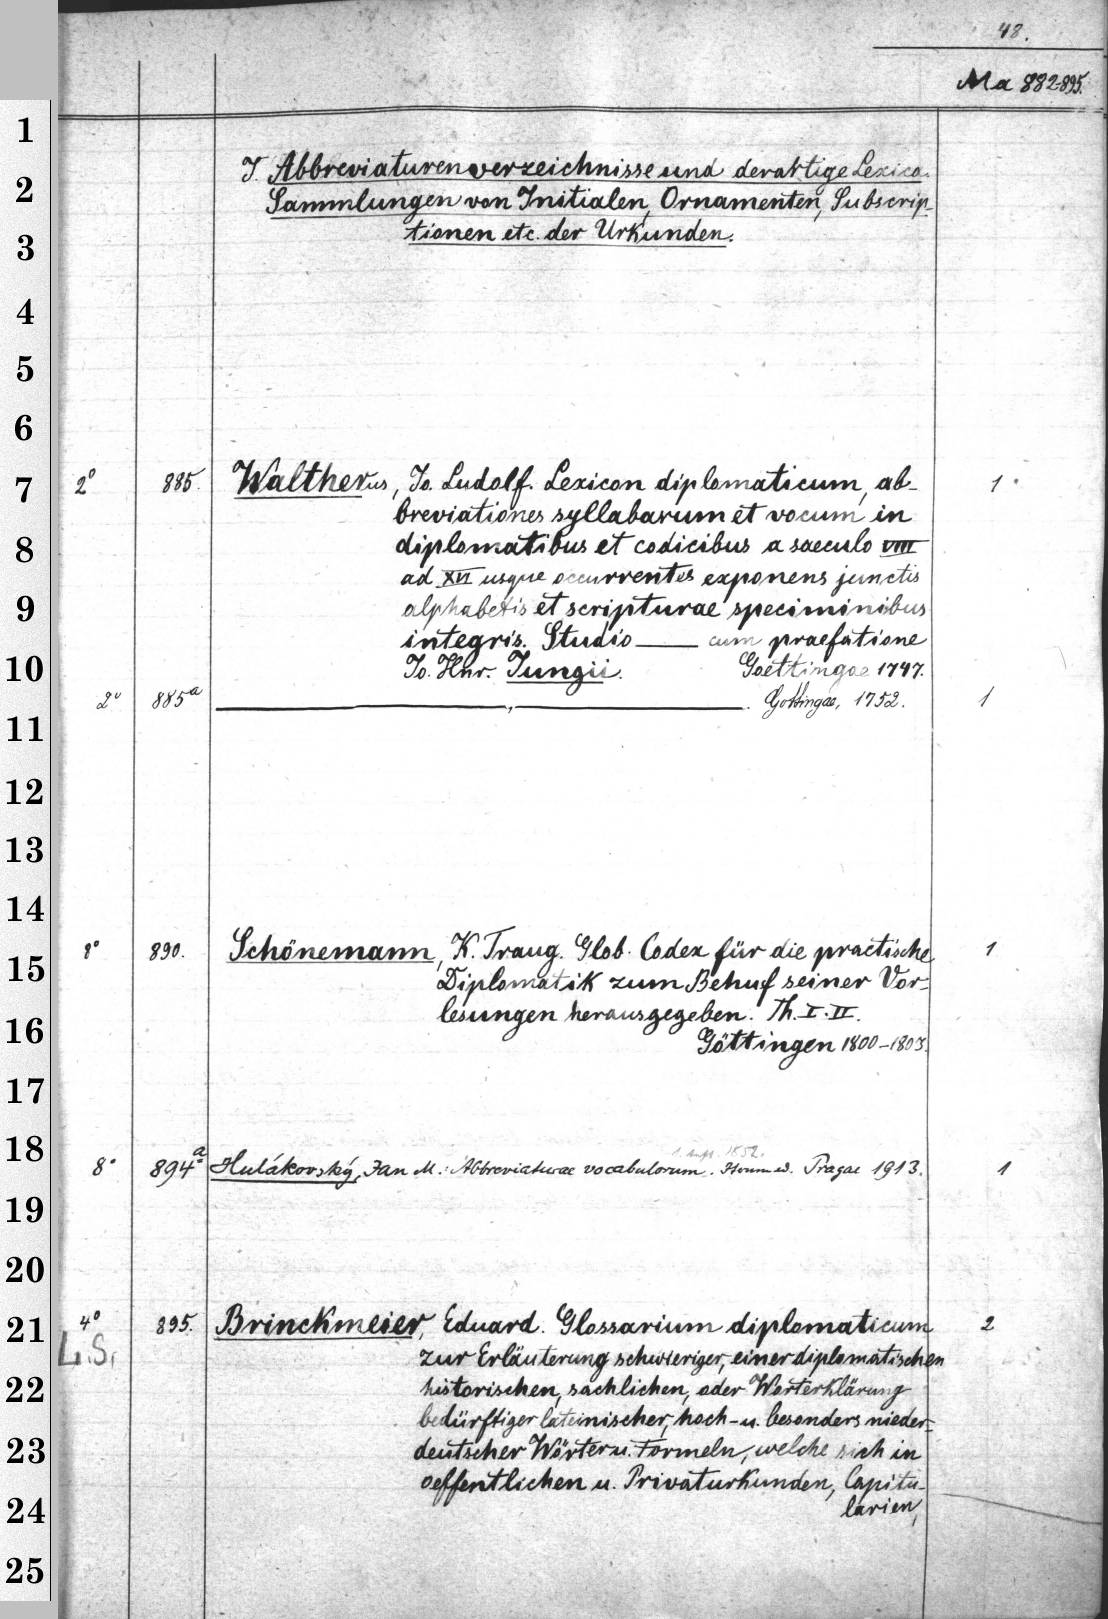 48.
Ma 882-895.
J. Abbreviaturenverzeichnisse und derartige Lexica.
Sammlungen von Initialen, Ornamenten, Subscrip-
tionen etc. der Urkunden.
2° 885. Waltherus, Jo. Ludolf. Lexicon diplomaticum, ab- 1
breviationes syllabarum et vocum in
diplomatibus et codicibus a saeculo VIII
ad XVI usque occurrentes exponens junctis
alphabetis et scripturae speciminibus
integris. Studio —— cum praefatione
Jo. Hnr. Jungii. Goettingae 1747.
2° 885a ———, ———. Gottingae, 1752. 1
8° 890. Schönemann, K. Traug. Glob. Codex für die practische 1
Diplomatik zum Behuf seiner Vor-
lesungen herausgegeben. Th. I. II.
Göttingen 1800-1803.
1. Aufl. 1852.
8° 894a Hulákovský, Jan M.: Abbreviaturae vocabulorum. Iterum ed. Pragae 1913. 1
4° 895. Brinckmeier, Eduard. Glossarium diplomaticum 2
L.S. zur Erläuterung schwieriger, einer diplomatischen
historischen, sachlichen, oder Worterklärung
bedürftiger lateinischer, hoch- u. besonders nieder-
deutscher Wörter u. Formeln, welche sich in
oeffentlichen u. Privaturkunden, Capitu-
larien,
1
2
3
4
5
6
7
8
9
10
11
12
13
14
15
16
17
18
19
20
21
22
23
24
25